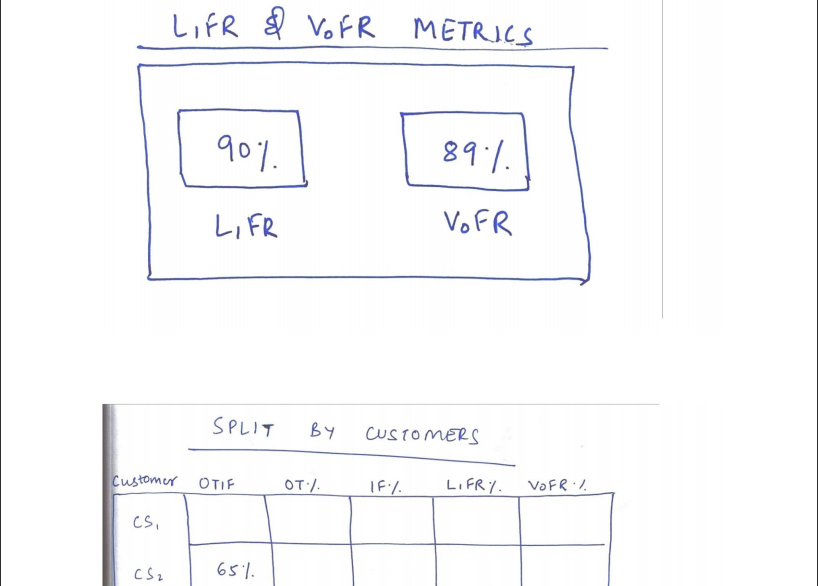 LIFR & VOFR METRICS
90% 89%
LIFR VOFR
SPLIT BY CUSTOMERS
Customer OTIF OT% IF% LIFR% VOFR%
CS1
CS2 65%